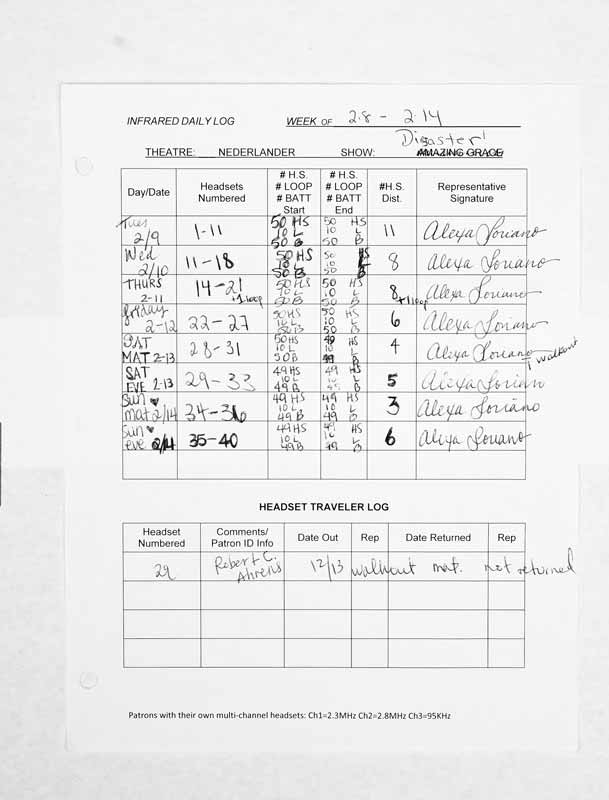 INFRARED DAILY LOG WEEK OF 2.8 - 2.14
Disaster!
THEATRE: NEDERLANDER SHOW: AMAZING GRACE
Day/Date Headsets Numbered # H.S. # LOOP # BATT Start # H.S. # LOOP # BATT End #H.S. Dist. Representative Signature
Tues 2/9 1-11 50 HS 10 L 50 B 50 HS 10 L 50 B 11 Alexa Soriano
Wed 2/10 11-18 50 HS 10 L 50 B 50 HS 10 L 50 B 8 Alexa Soriano
THURS 2-11 14-21 +1 loop 50 HS 10 L 50 B 50 HS 10 L 50 B 8 +1 loop Alexa Soriano
friday 2-12 22-27 50 HS 10 L 50 B 50 HS 10 L 50 B 6 Alexa Soriano
SAT MAT 2-13 28-31 50 HS 10 L 50 B 49 HS 10 L 49 B 4 Alexa Soriano 1 walkout
SAT EVE 2-13 29-33 49 HS 10 L 49 B 49 HS 10 L B 5 Alexa Soriano
Sun mat 2/14 34-36 49 HS 10 L 49 B 49 HS 10 L 49 B 3 Alexa Soriano
Sun eve 2/14 35-40 49 HS 10 L 49 B 49 HS 10 L 49 B 6 Alexa Soriano
HEADSET TRAVELER LOG
Headset Numbered Comments/ Patron ID Info Date Out Rep Date Returned Rep
29 Robert C. Ahrens 12/13 walkout mat. not returned
Patrons with their own multi-channel headsets: Ch1=2.3MHz Ch2=2.8MHz Ch3=95KHz